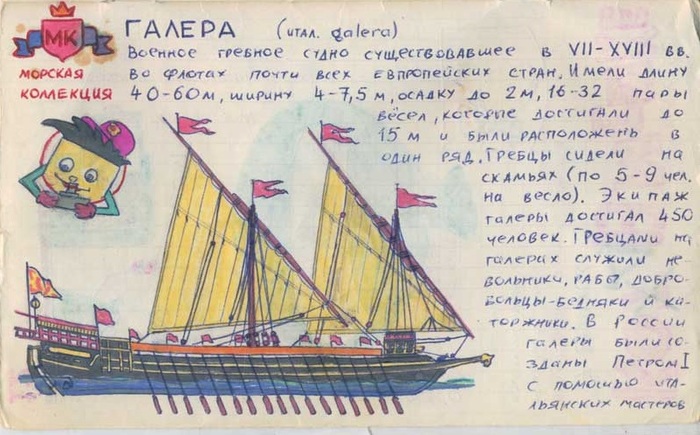 МК
МОРСКАЯ
КОЛЛЕКЦИЯ
ГАЛЕРА (итал. galera)
Военное гребное судно существовавшее в VII-XVIII вв.
во флотах почти всех европейских стран. Имели длину
40-60м, ширину 4-7,5 м, осадку до 2м, 16-32 пары
вёсел, которые достигали до
15 м и были расположень в
один ряд. Гребцы сидели на
скамьях (по 5-9 чел.
на весло). Экипаж
галеры достигал 450
человек. Гребцами на
галерах служили не-
вольники, рабо, добро-
вольцы-бедняки и ка-
торжники. В России
галеры были со-
зданы Петром I
с помошью ита-
льянских мастеров